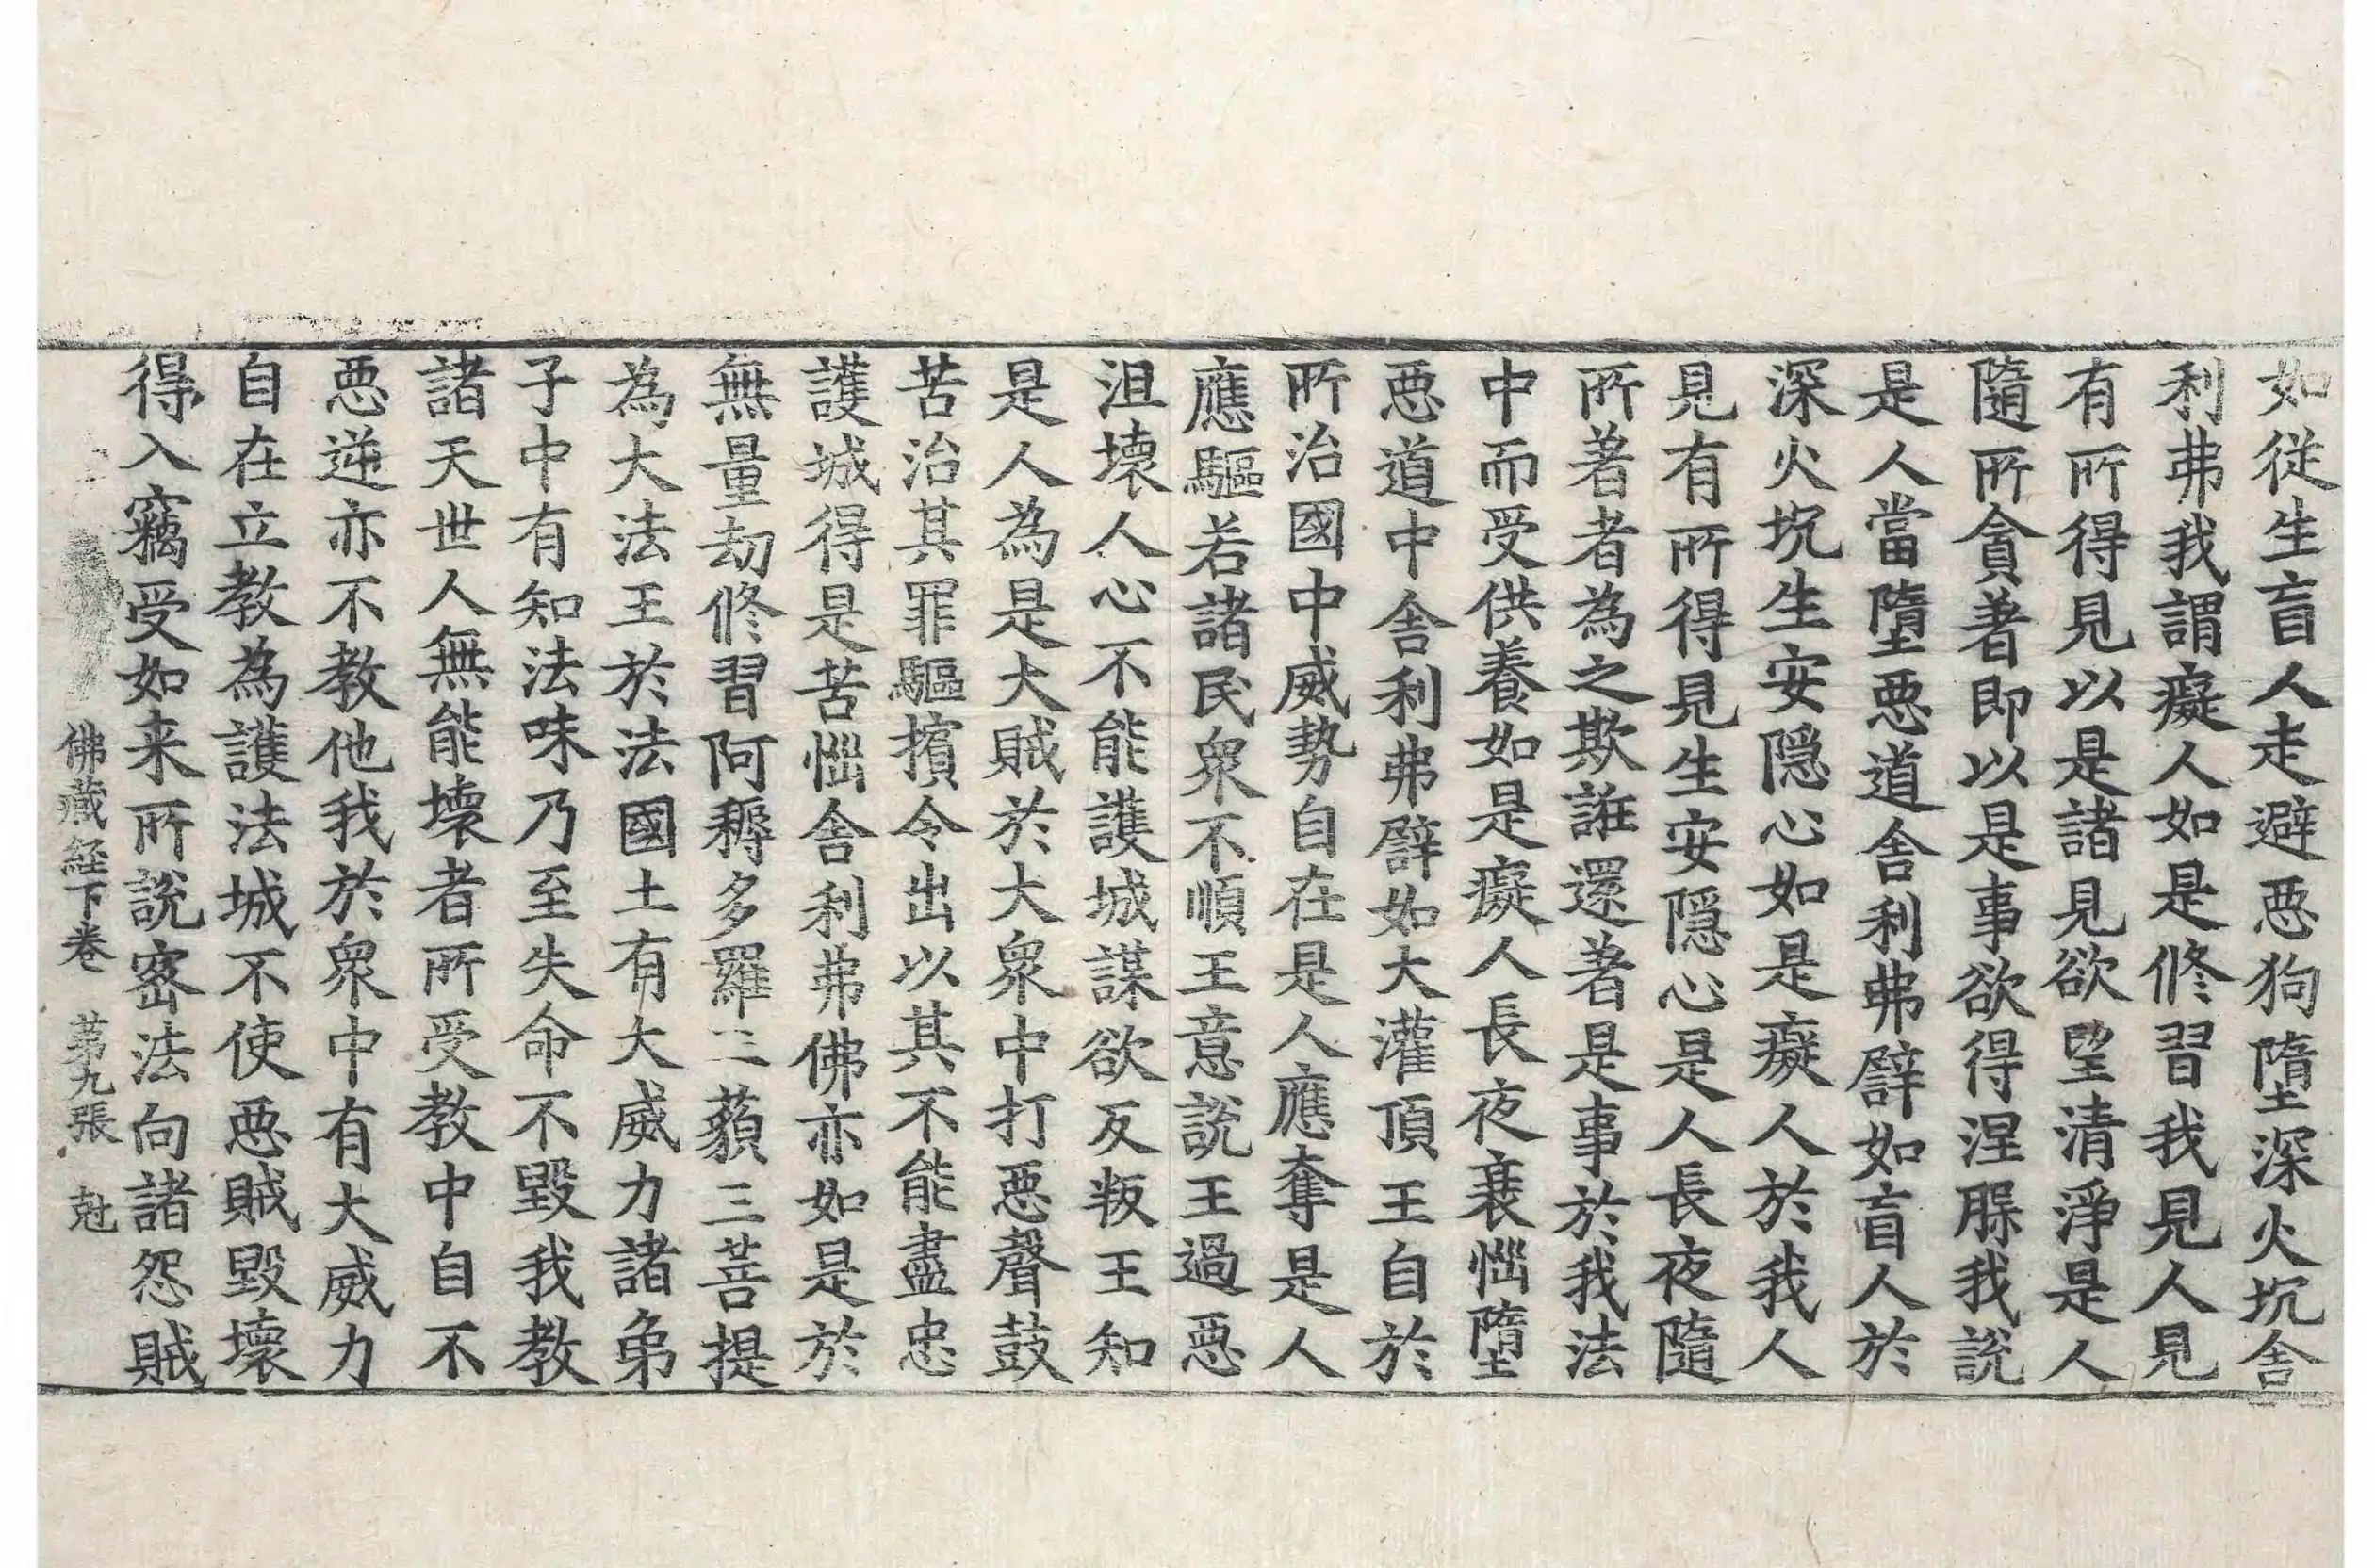 如從生盲人走避悪狗墮深火坑舎
利弗我謂癡人如是修習我見人見
有所得見以是諸見欲望清淨是人
隨所貪著即以是事欲得涅槃我說
是人當墮悪道舎利弗譬如盲人於
深火坑生安隠心如是癡人於我人
見有所得見生安隠心是人長夜隨
所著者為之欺誑還著是事於我法
中而受供養如是癡人長夜衰惱墮
悪道中舎利弗譬如大灌頂王自於
所治國中威勢自在是人應奪是人
應驅若諸民衆不順王意說王過悪
沮壊人心不能護城謀欲反叛王知
是人為是大賊於大衆中打悪聲鼓
苦治其罪驅擯令出以其不能盡忠
護城得是苦惱舎利弗佛亦如是於
無量劫修習阿耨多羅三藐三菩提
為大法王於法國土有大威力諸弟
子中有知法味乃至失命不毀我教
諸天世人無能壊者所受教中自不
悪逆亦不教他我於衆中有大威力
自在立教為護法城不使悪賊毀壊
得入竊受如来所說密法向諸怨賊
佛藏経下卷 苐九張 尅